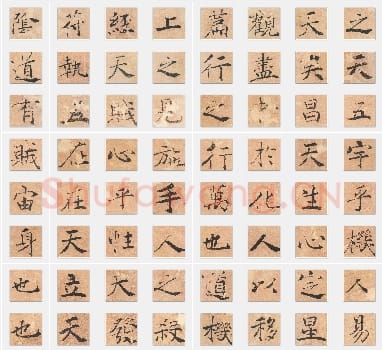 陰符經上篇觀天之
道執天之行盡矣天
有賊見之昌五
賊在心施行於天宇
宙在乎手萬化生乎
Shufawang.CN
身天性人也人心機
也立天之道以定人
也天發殺機移星易